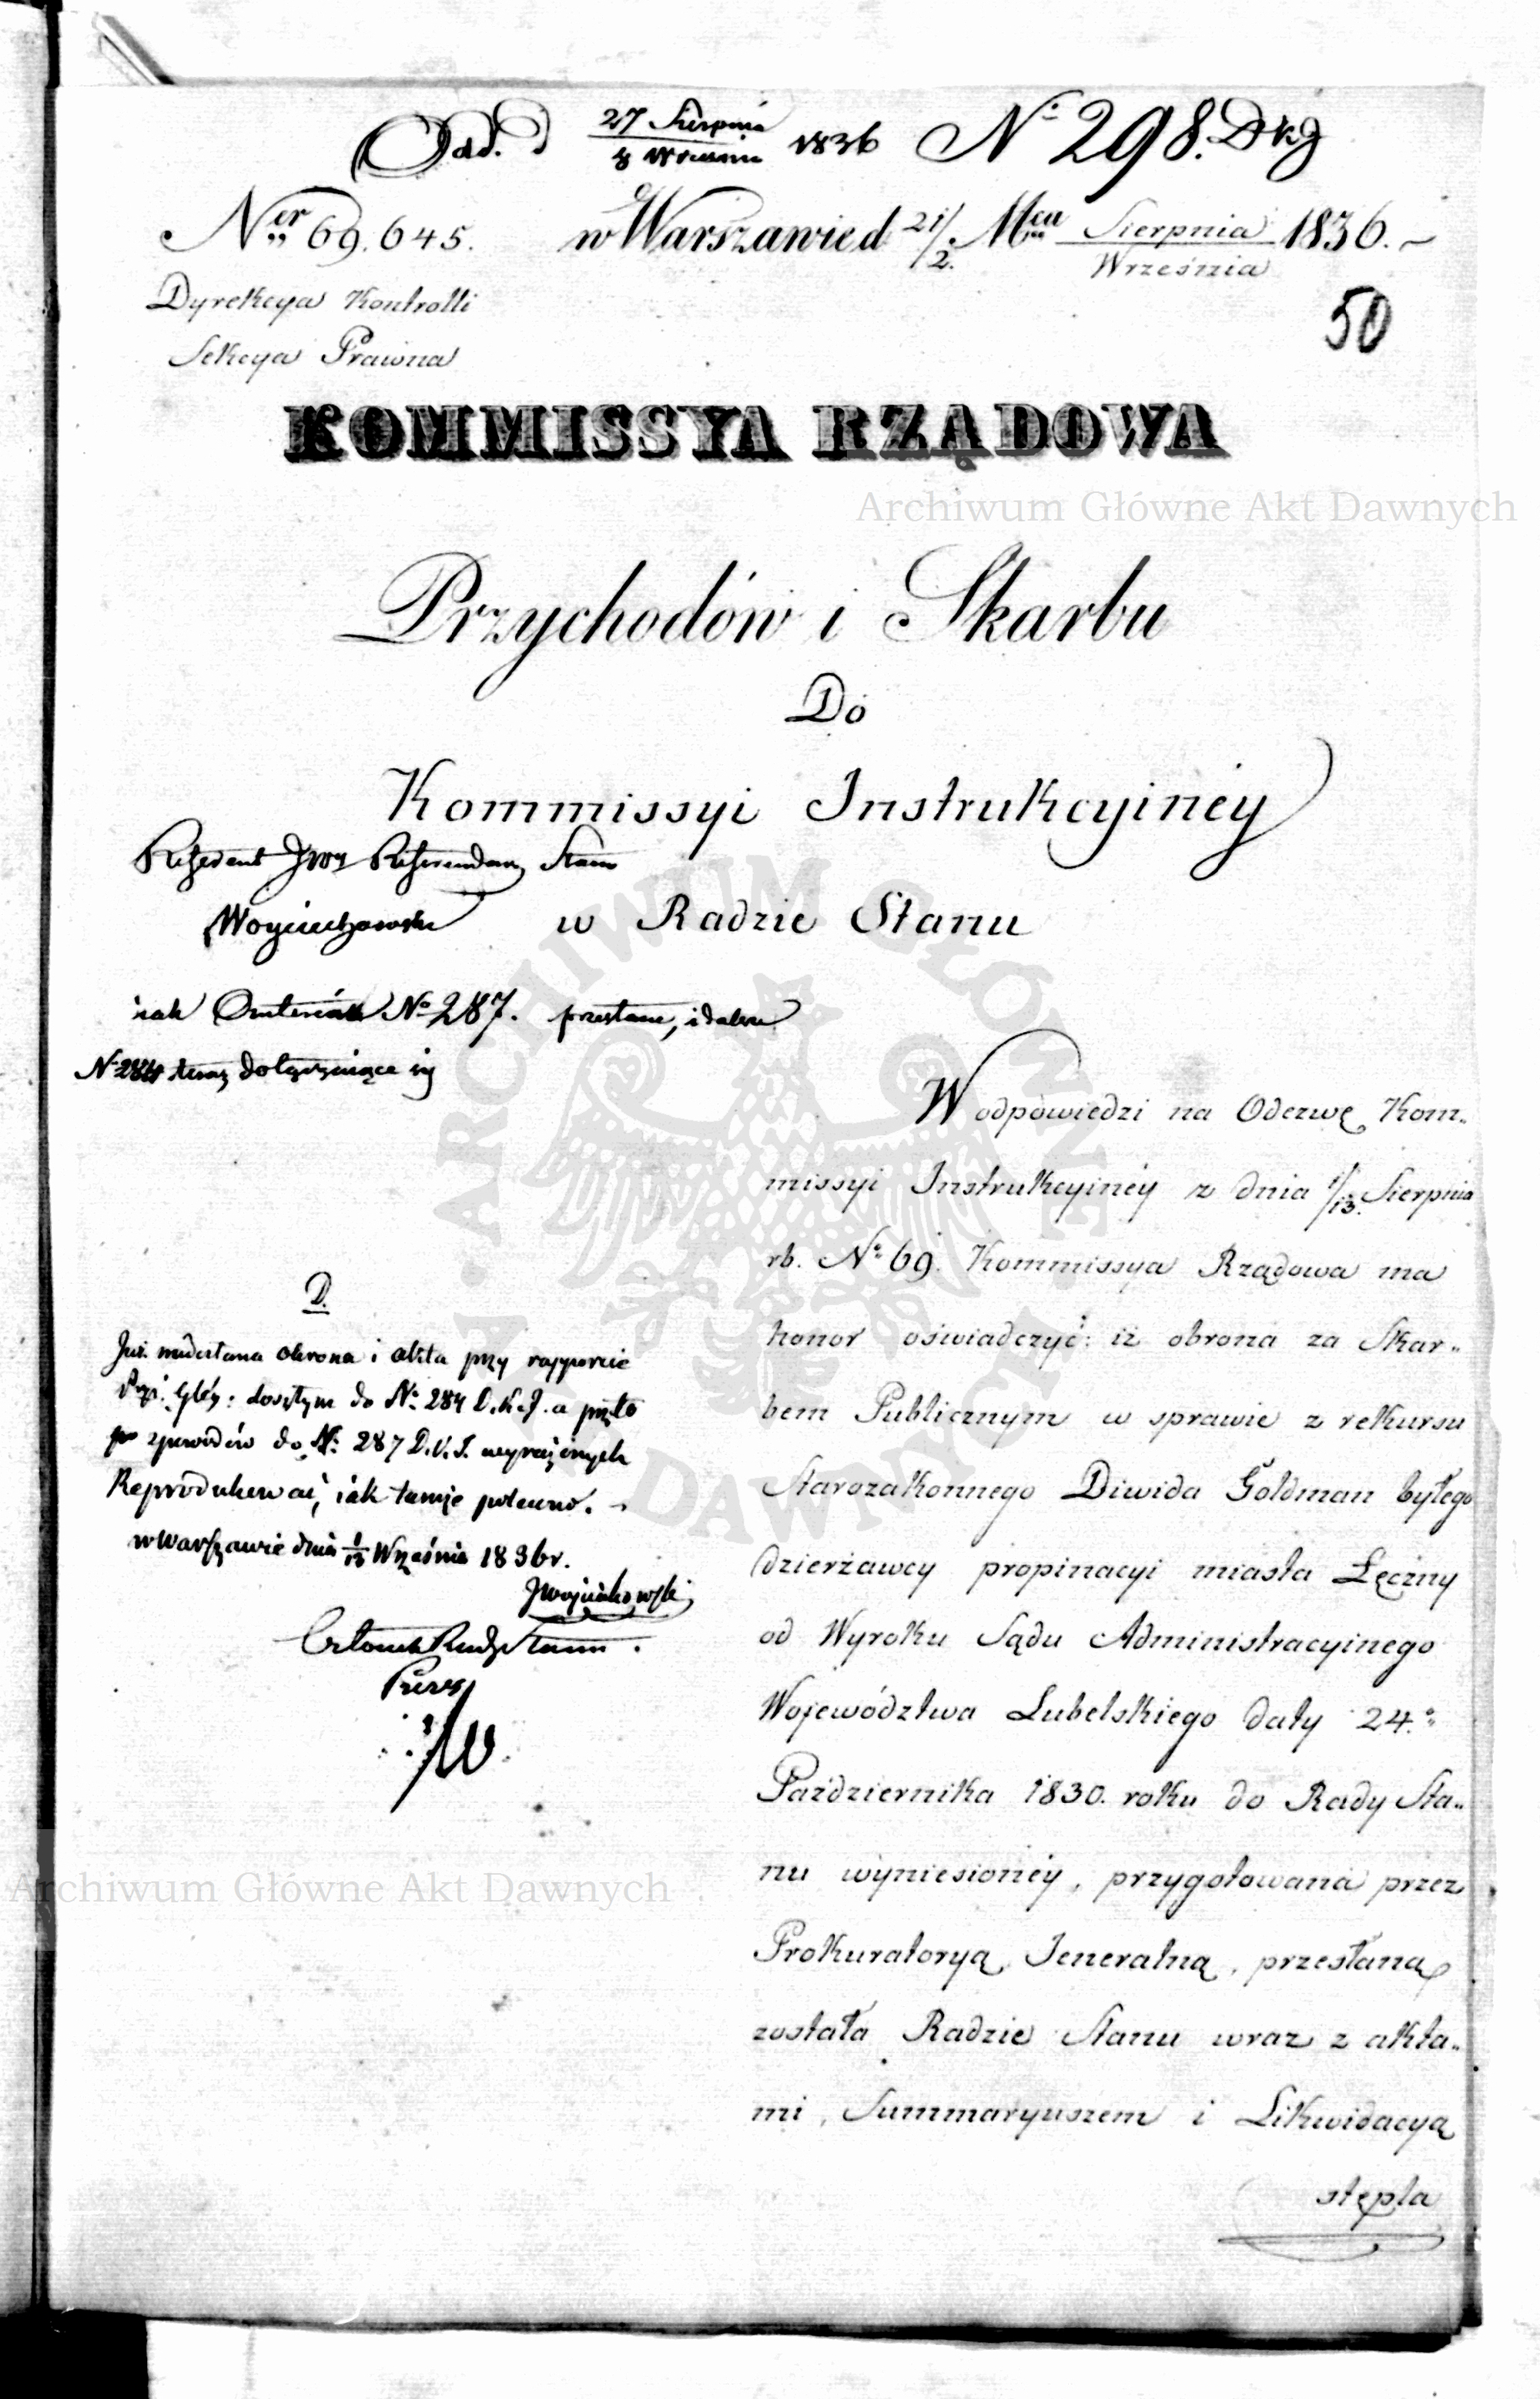 Odd. d 27 Sierpnia / 8 Września 1836 N° 298. DKJ
Ner 69.645. w Warszawie d 21/2. Mca Sierpnia / Września 1836.
50
Dyrekcya Kontrolli
Sekcya Prawna
KOMMISSYA RZĄDOWA
Archiwum Główne Akt Dawnych
Przychodów i Skarbu
Do
Kommissyi Instrukcyinéy
Referent JWny Referendarz Stanu
Woyciechowski
w Radzie Stanu
iak N° 287. i dalsze
N° 284 teraz dołączaiące się
W odpowiedzi na Odezwę Kom„
missyi Instrukcyinéy z dnia 1/13. Sierpnia
rb. N° 69. Kommissya Rządowa ma
honor oświadczyć: iż obrona za Skar„
bem Publicznym w sprawie z rekursu
Starozakonnego Diwida Goldman byłego
dzierżawcy propinacyi miasta Łęczny
od Wyroku Sądu Administracyinego
Województwa Lubelskiego daty 24.°
Października 1830. roku do Rady Sta„
nu wyniesionéy, przygotowana przez
Prokuratoryą Jeneralną, przesłaną
została Radzie Stanu wraz z akta„
mi, Summaryuszem i Likwidacyą
stępla
D.
Już nadesłana obrona i akta przy rapporcie
do N° 284 D.K.J. a przeto
z powodów do N° 287 D.K.J. wyrażonych
Reprodukować, iak tamże polecono.
w Warszawie dnia 1/13 Września 1836 r.
JWoyciechowski
Członek Rady Stanu
Prezes
Archiwum Główne Akt Dawnych
ARCHIWUM GŁÓWNE AKT DAWNYCH